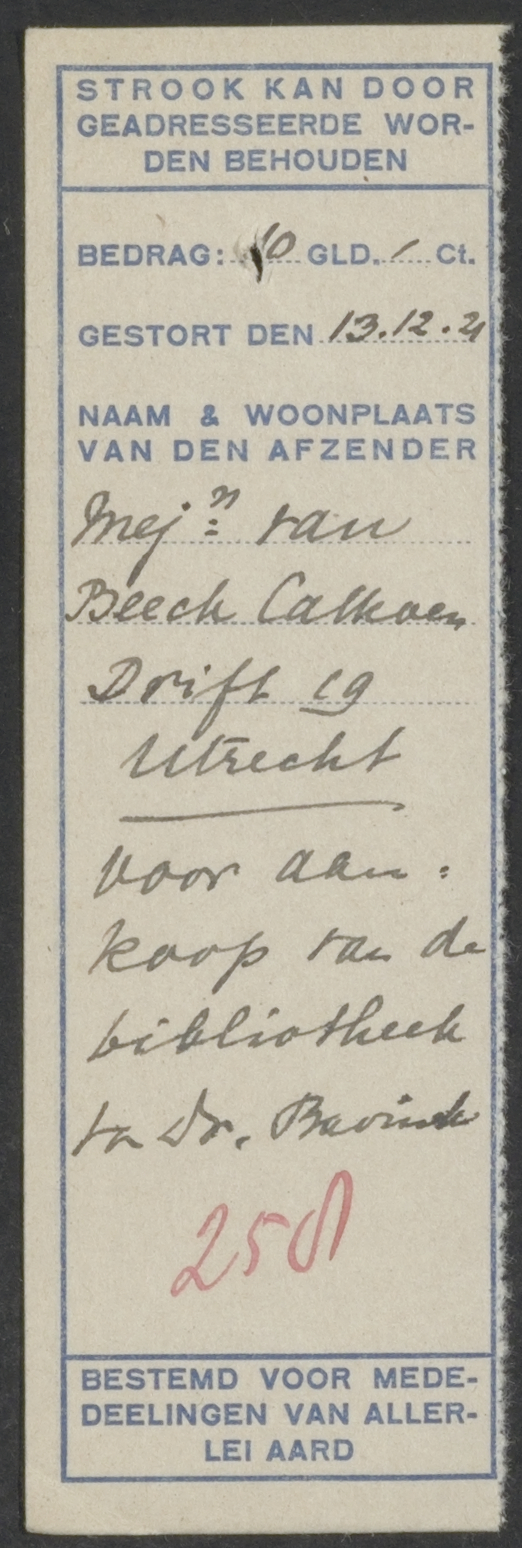 STROOK KAN DOOR
GEADRESSEERDE WOR-
DEN BEHOUDEN
BEDRAG: 10 GLD. / Ct.
GESTORT DEN 13.12.21
NAAM & WOONPLAATS
VAN DEN AFZENDER
Mej.n van
Beeck Calkoen
Drift 19
Utrecht
voor aan=
koop van de
bibliotheek
van Dr. Bavinck
258
BESTEMD VOOR MEDE-
DEELINGEN VAN ALLER-
LEI AARD